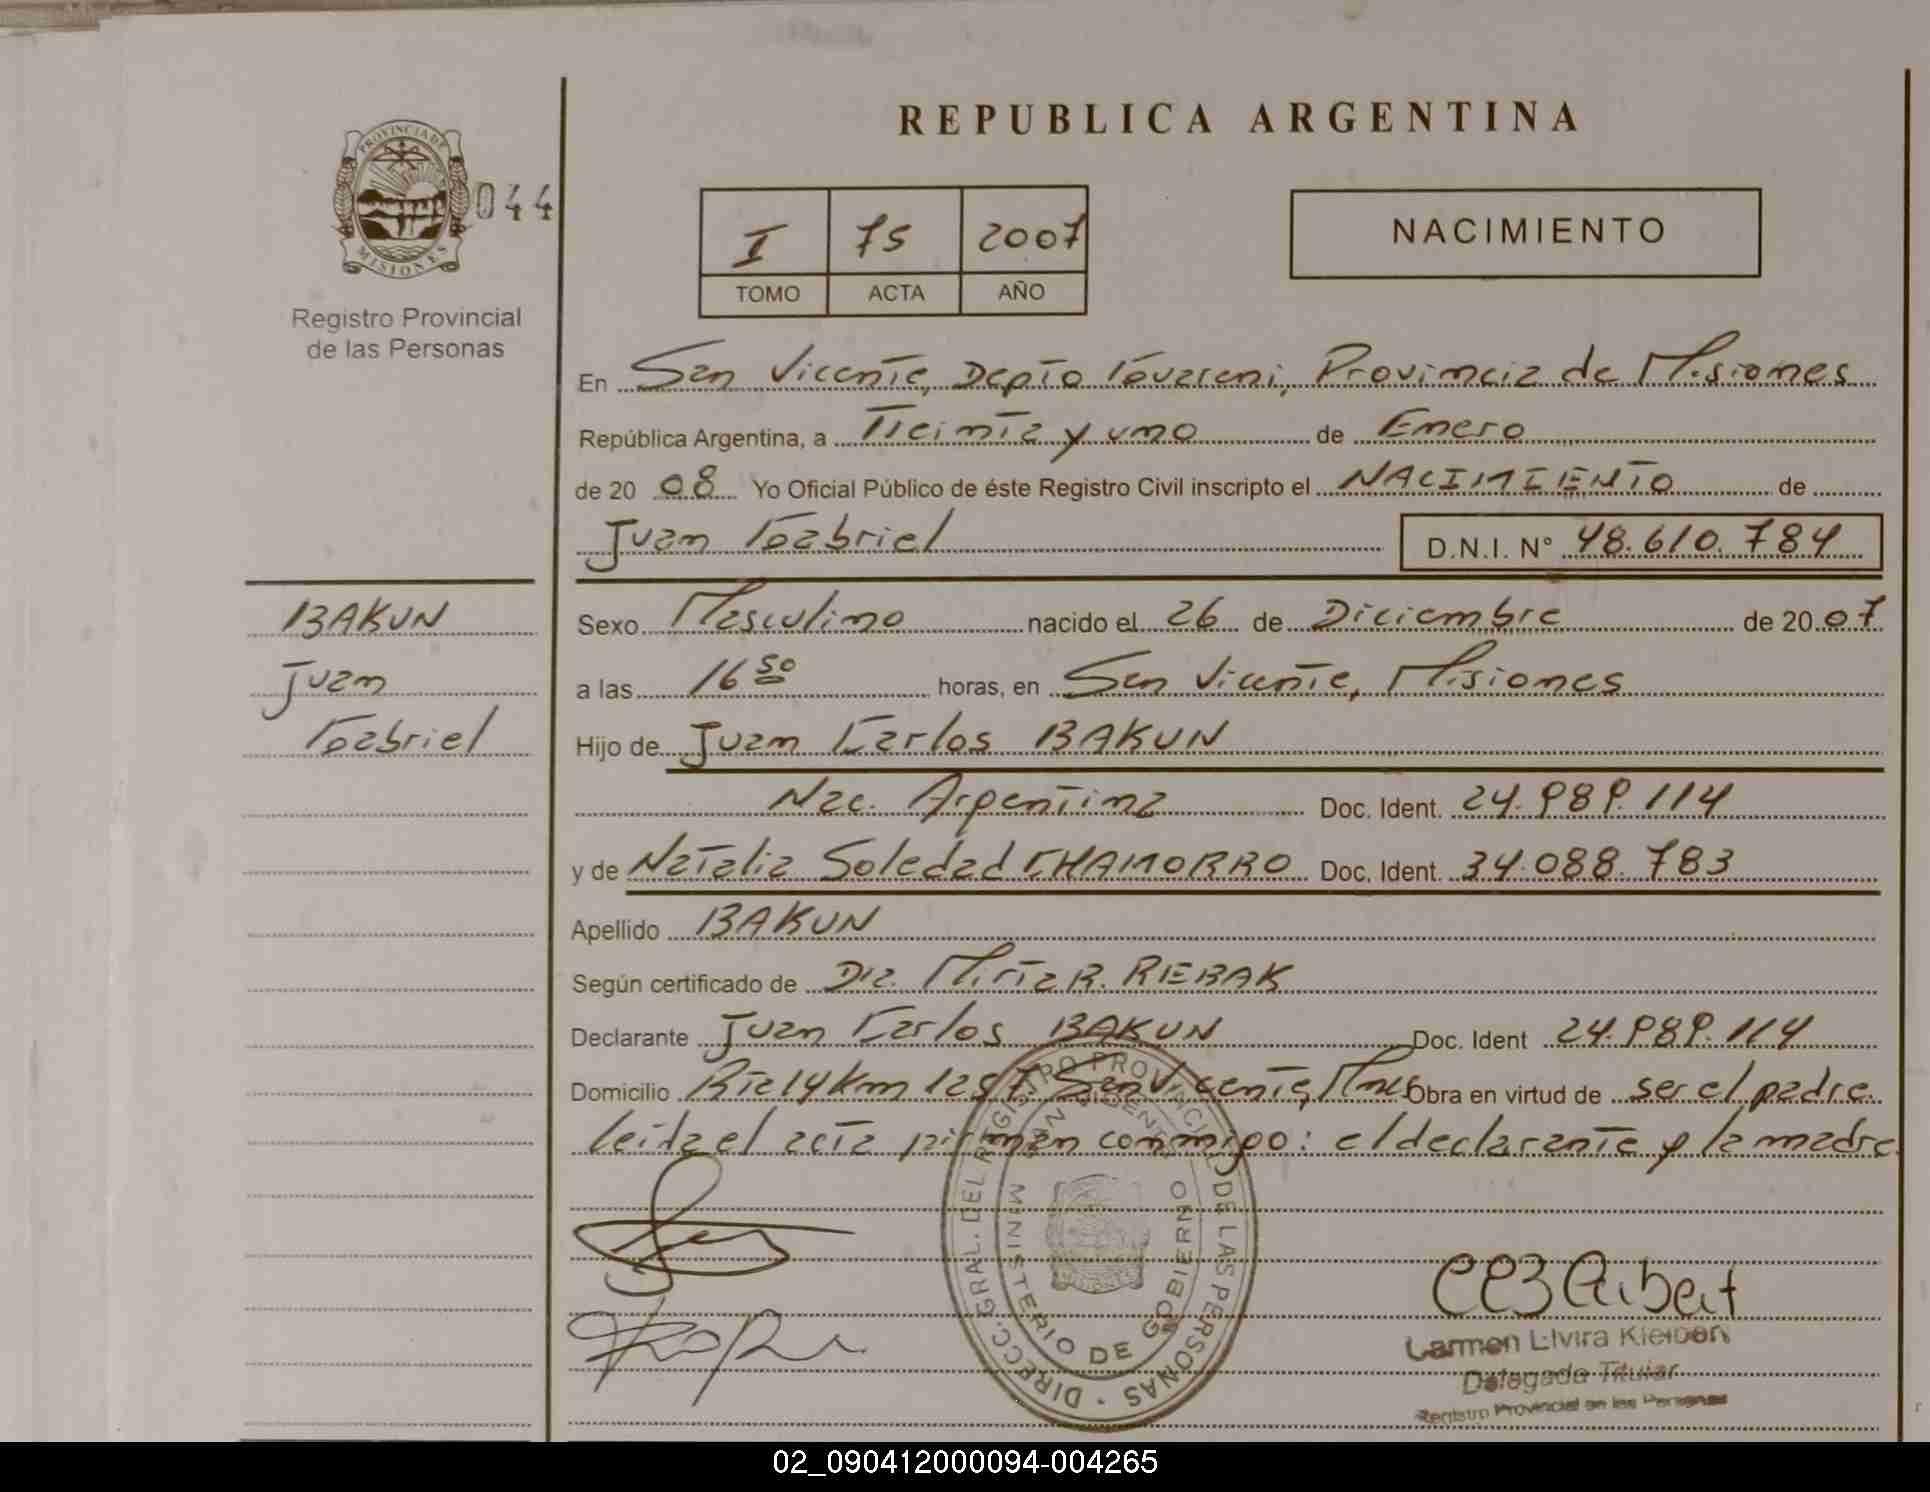 REPUBLICA ARGENTINA
PROVINCIA DE
MISIONES
044
Registro Provincial
de las Personas
I 75 2007
TOMO ACTA AÑO
NACIMIENTO
En San Vicente, Depto Guarani, Provincia de Misiones
República Argentina, a Treinta y uno de Enero
de 20 08 Yo Oficial Público de éste Registro Civil inscripto el NACIMIENTO de
Juan Gabriel D.N.I. Nº 48.610.784
BAKUN
Juan
Gabriel
Sexo Masculino nacido el 26 de Diciembre de 20 07
a las 16 50 horas, en San Vicente, Misiones
Hijo de Juan Carlos BAKUN
Nac. Argentina Doc. Ident. 24.989.114
y de Natalia Soledad CHAMORRO Doc. Ident. 34.088.783
Apellido BAKUN
Según certificado de Dra. Mirta R. REBAK
Declarante Juan Carlos BAKUN Doc. Ident 24.989.114
Domicilio Rta 14 Km 1257 San Vicente, Mnes Obra en virtud de ser el padre
leida el acta firman conmigo: el declarante y la madre
DIRECC. GRAL. DEL REGISTRO PROVINCIAL DE LAS PERSONAS
SAN VICENTE
MINISTERIO DE GOBIERNO
Carmen Elvira
Delegada Titular
Registro Provincial de las Personas
02_090412000094-004265